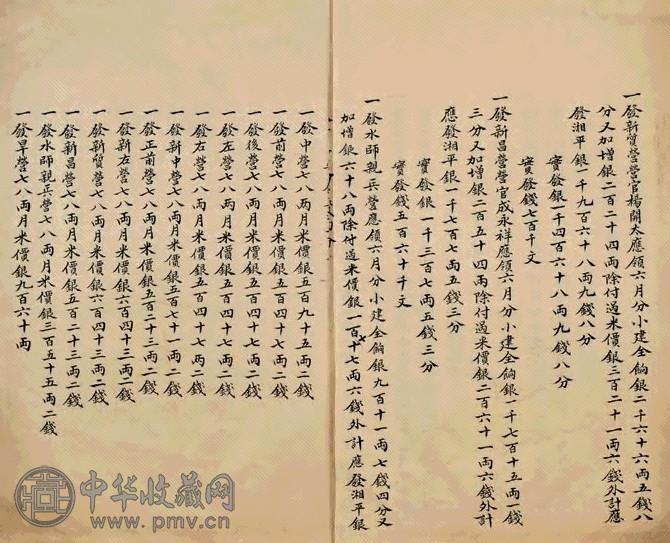 一發新質營營官楊開太應領六月分小建全餉銀二千六十六兩五錢八
分又加增銀二百二十四兩除付過米價銀三百二十一兩六錢外計應
發湘平銀一千九百六十八兩九錢八分
實發銀一千四百六十八兩九錢八分
實發錢七百千文
一發新昌營營官成永祥應領六月分小建全餉銀一千七百十五兩一錢
三分又加增銀二百五十四兩除付過米價銀二百六十一兩六錢外計
應發湘平銀一千七百七兩五錢三分
實發銀一千三百七兩五錢三分
實發錢五百六十千文
一發水師親兵營應領六月分小建全餉銀九百十一兩七錢四分又
加增銀六十八兩除付過米價銀一百十七兩六錢外計應發湘平銀
一發中營七八兩月米價銀五百九十五兩二錢
一發前營七八兩月米價銀五百四十七兩二錢
一發後營七八兩月米價銀五百四十七兩二錢
一發左營七八兩月米價銀五百四十七兩二錢
一發右營七八兩月米價銀五百四十七兩二錢
一發新中營七八兩月米價銀五百七十一兩二錢
一發正前營七八兩月米價銀五百二十三兩二錢
一發新左營七八兩月米價銀六百四十三兩二錢
一發新質營七八兩月米價銀六百四十三兩二錢
一發新昌營七八兩月米價銀五百二十三兩二錢
一發水師親兵營七八兩月米價銀三百五十五兩二錢
一發旱營七八兩月米價銀九百六十兩
中华收藏网
www.pmv.cn